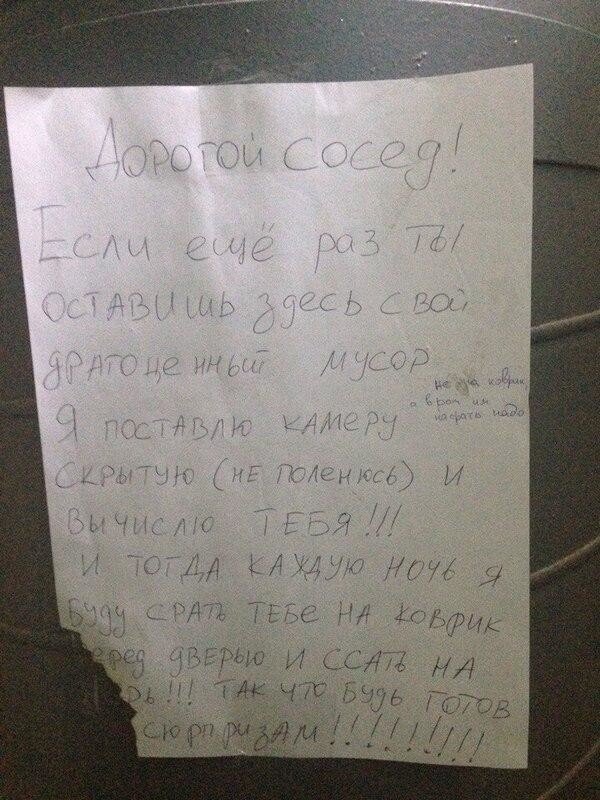 Дорогой сосед!
Если ещё раз ты
оставишь здесь свой
драгоценный мусор
не на коврик
а в рот им
насрать надо
Я поставлю камеру
скрытую (не поленюсь) и
вычислю ТЕБЯ!!!
И тогда каждую ночь я
буду срать тебе на коврик
еред дверью и ссать на
рь!!! Так что будь готов
сюрпризам!!!!!!!!!